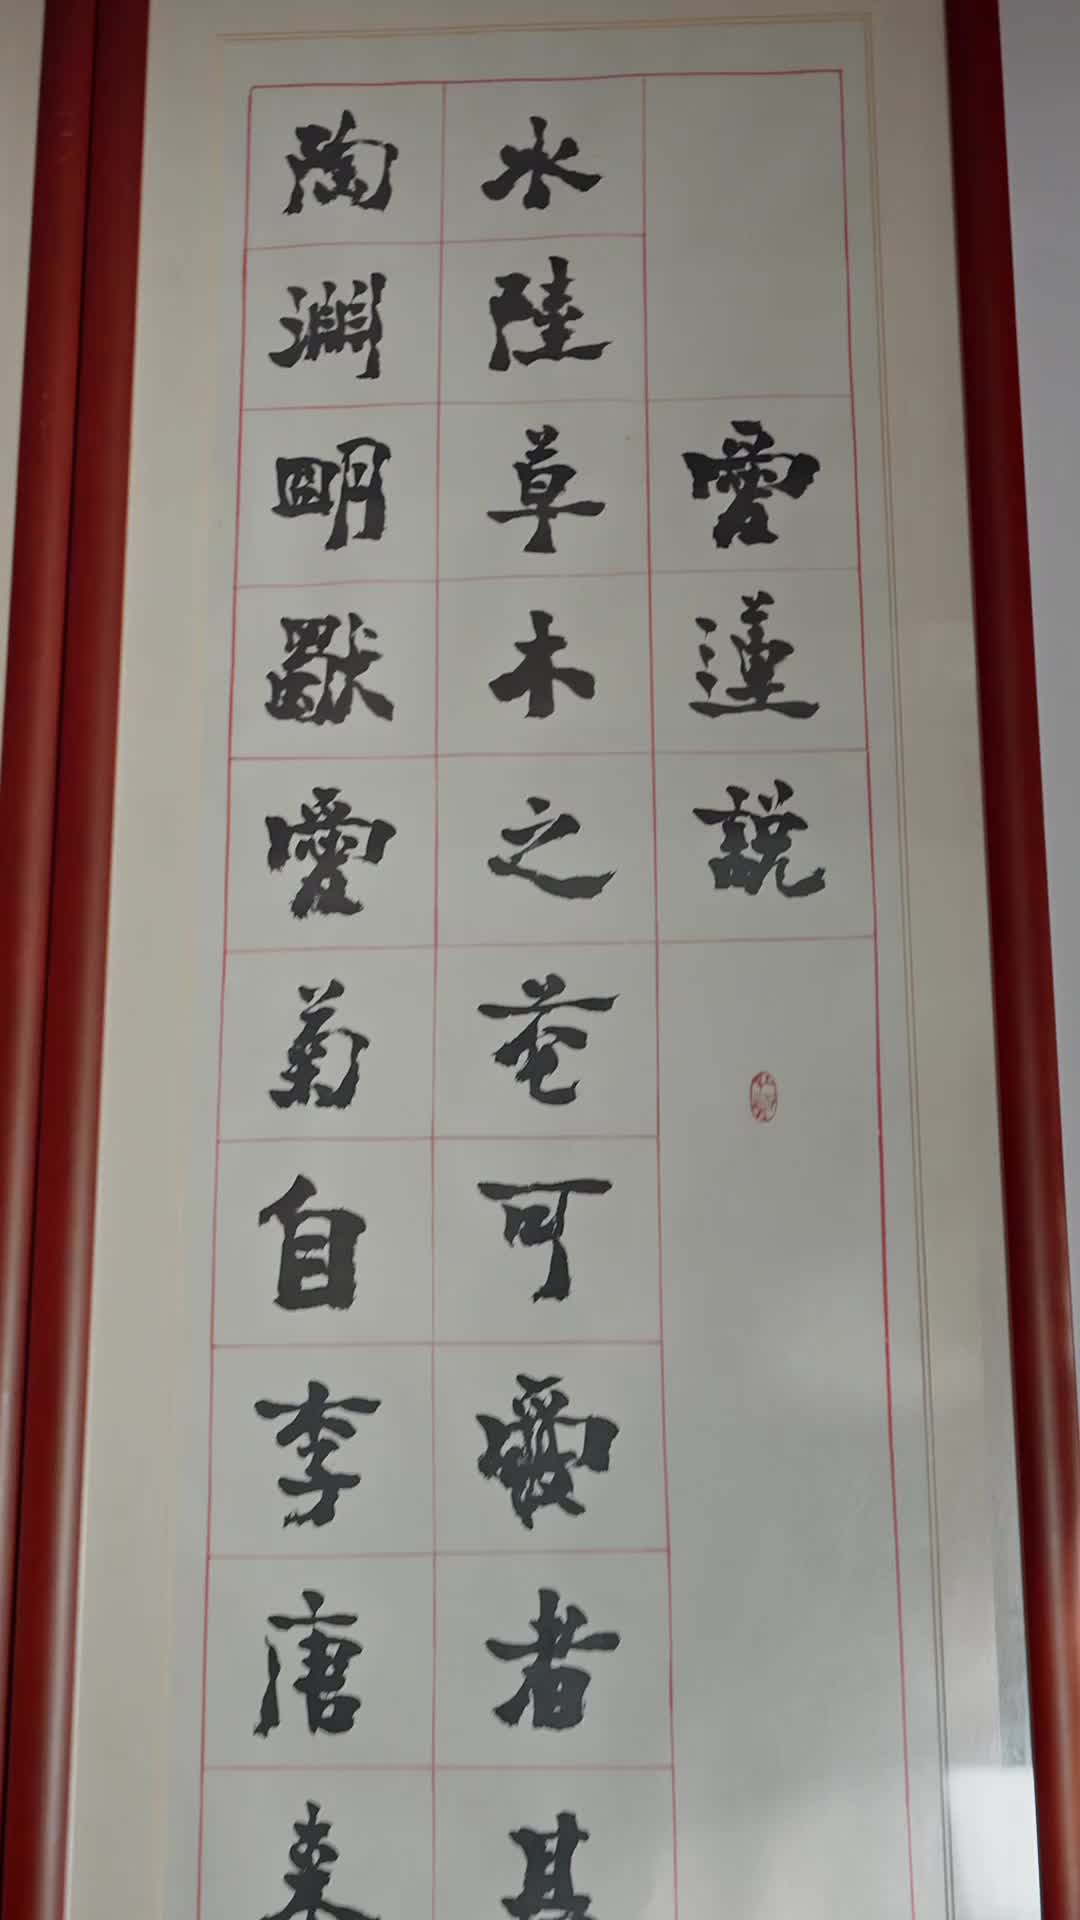 愛蓮說
水陸草木之花可愛者甚
陶淵明獨愛菊自李唐来